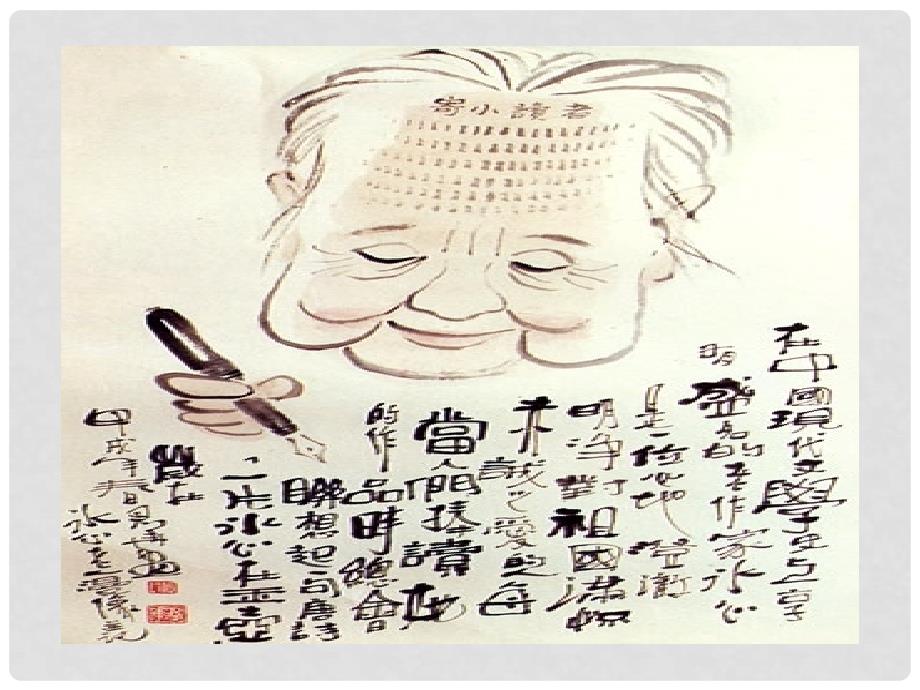 寄小讀者
在中國現代文學史上享
盛名的老作家冰心
是一位心地澄澈
明净對祖國滿懷
赤誠之愛的母
當人們捧讀她
的作品時總會
聯想起句唐詩
一片冰心在玉壺
歲在
甲戌年春
冰心老